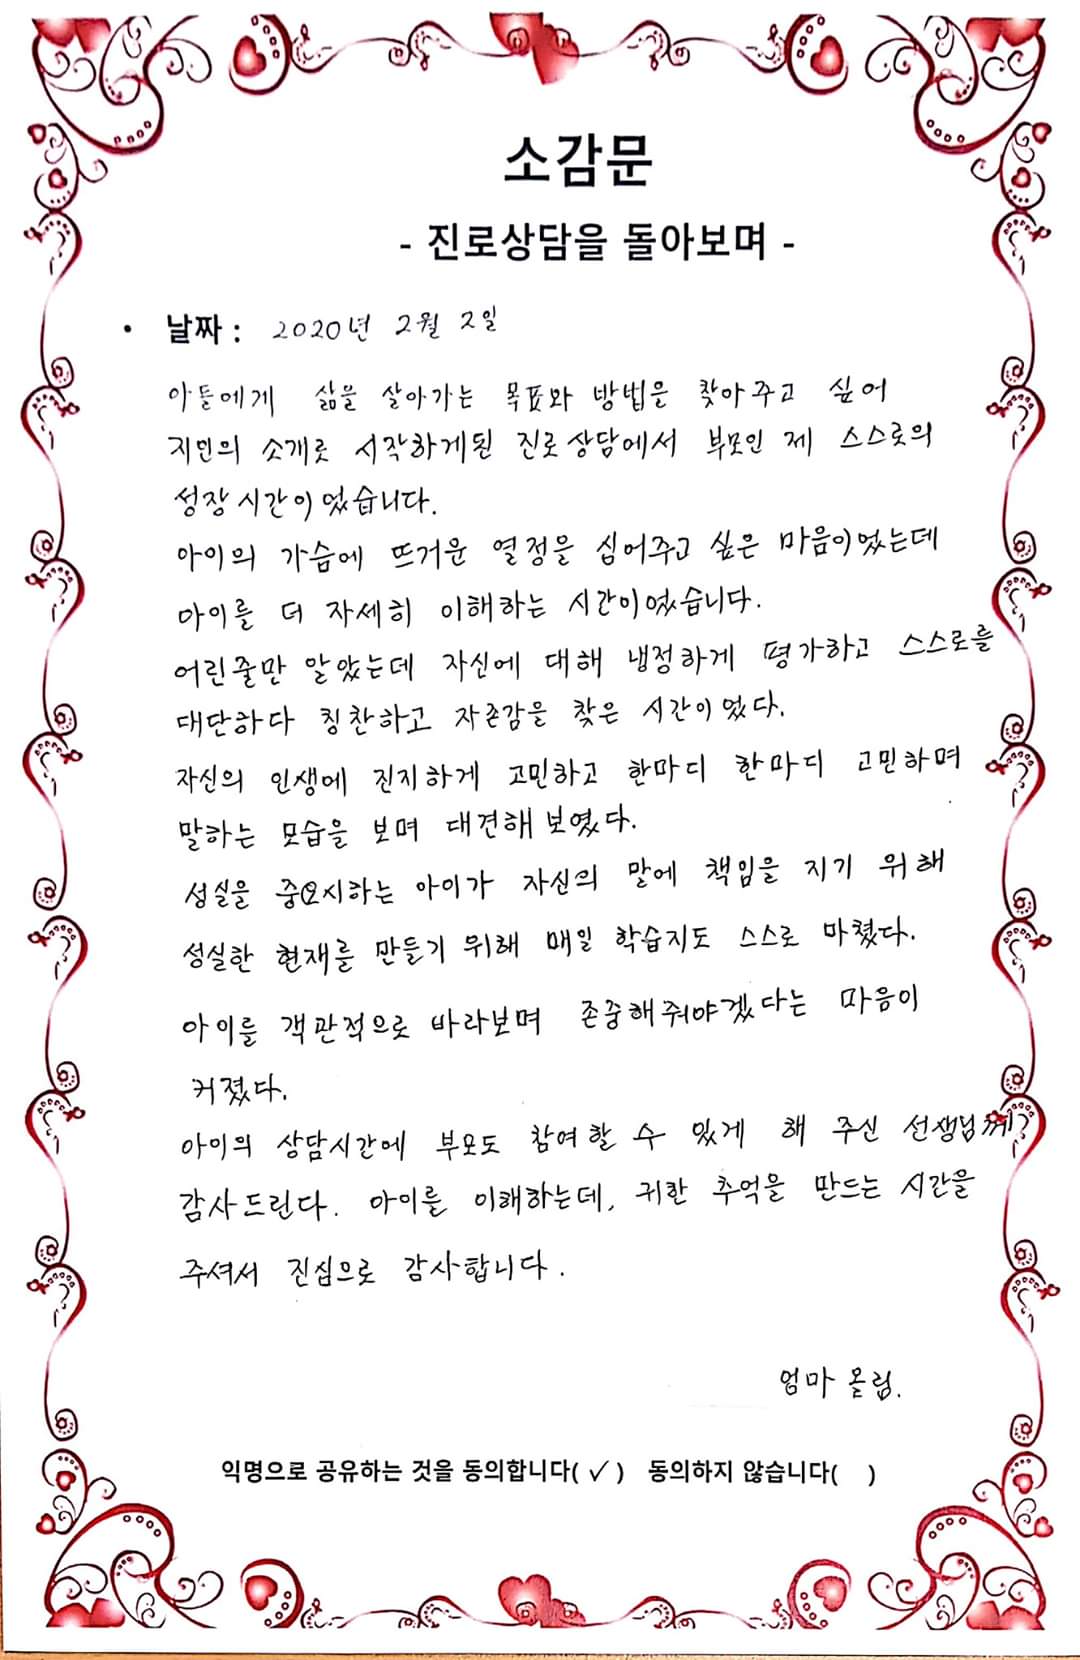 소감문
- 진로상담을 돌아보며 -
• 날짜 : 2020년 2월 2일
아들에게 삶을 살아가는 목표와 방법을 찾아주고 싶어
지인의 소개로 시작하게된 진로상담에서 부모인 제 스스로의
성장시간이었습니다.
아이의 가슴에 뜨거운 열정을 심어주고 싶은 마음이었는데
아이를 더 자세히 이해하는 시간이었습니다.
어린줄만 알았는데 자신에 대해 냉정하게 평가하고 스스로를
대단하다 칭찬하고 자존감을 찾은 시간이었다.
자신의 인생에 진지하게 고민하고 한마디 한마디 고민하며
말하는 모습을 보며 대견해보였다.
성실을 중요시하는 아이가 자신의 말에 책임을 지기 위해
성실한 현재를 만들기 위해 매일 학습지도 스스로 마쳤다.
아이를 객관적으로 바라보며 존중해줘야겠다는 마음이
커졌다.
아이의 상담시간에 부모도 참여할 수 있게 해 주신 선생님께
감사드린다. 아이를 이해하는데, 귀한 추억을 만드는 시간을
주셔서 진심으로 감사합니다.
엄마 올림.
익명으로 공유하는 것을 동의합니다( ✓ ) 동의하지 않습니다( )